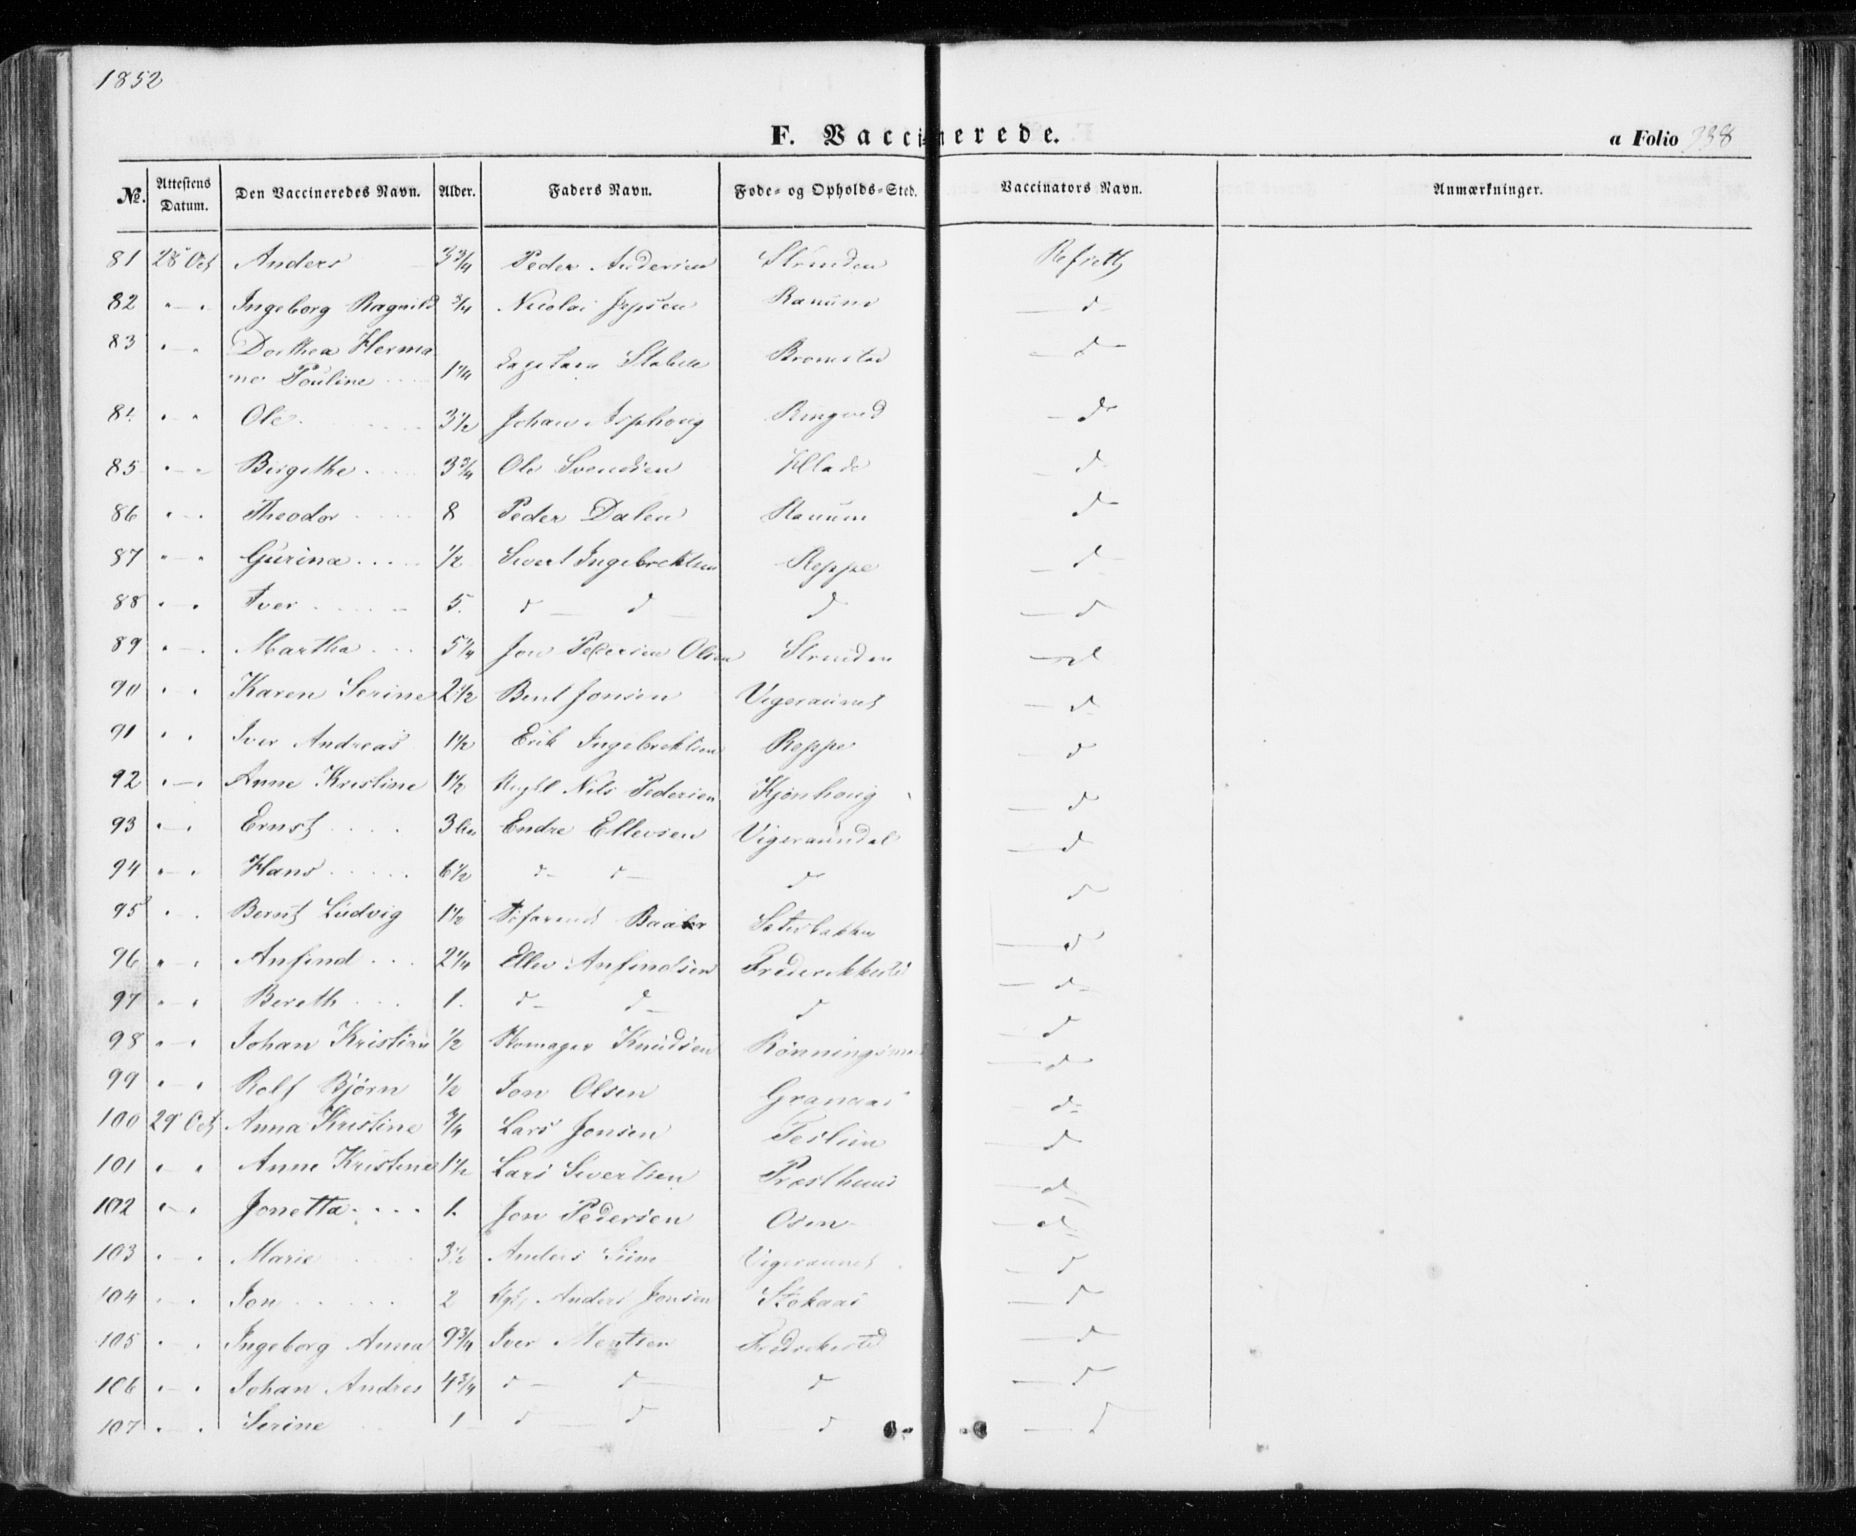 1852
F. Vaccinerede.
a Folio 338
№. Attestens Datum. Den Vaccineredes Navn. Alder. Faders Navn. Føde- og Opholds-Sted. Vaccinators Navn. Anmærkninger.
81 28 Oct Anders 3 3/4 Peder Andersen Stranden
82 " — " Ingeborg Ragnild 3/4 Nicolai Jepsen Ranum — d —
83 " — " Dorthea Herma
ne Pouline 1 1/4 Stabell Bromstad — d —
84 " " Ole 3 1/2 Johan Asphoug Ringved — d —
85 " — " Birgithe 3 3/4 Ole Svendsen Hlade — d
86 " — " Theodor 8 Peder Dalen Ranum d —
87 " — " Gurina 1/2 Sivert Ingebrektsen Reppe — d —
88 " — " Iver 5. d — d — d — d
89 " — " Martha 5 1/4 Jon Pedersen Olsen Stranden — d
90 " — " Karen Serine 2 1/2 Bent Jonsen Vigeraunet — d
91 " " Iver Andreas 1 1/2 Erik Ingebrektsen Reppe — d
92 " — " Anne Kristine 1 1/2 Nils Pedersen Kjønhoug — d
93 " — " Ernst 3 Endre Ellevsen Vigeraundal — d
94 " — " Hans 6 1/2 d — d — d d
95 " — " Bernt Ludvig 1 1/2 Baaker Sæterbakken — d
96 " — " Anfind 2 1/4 Ellev Anfindsen — d —
97 " — " Bereth 1. d — d — d — d
98 " — " Johan Kristian 1/2 Skomager Knudsen — d
99 " — " Rolf Bjørn 1/2 Jon Olsen Granaas — d —
100 29 Oct Anna Kristine 3/4 Lars Jonsen Teslien — d
101 " — " Anne Kristine 1 1/2 Lars Sivertsen Præsthuus — d
102 " — " Jonetta 1. Jon Pedersen Osen — d —
103 " — " Marie 3 1/2 Anders Siim Vigeraunet — d
104 " — " Jon 2 Anders Jonsen Stokaas — d
105 " — " Ingeborg Anna 9 3/4 Iver Mentsen — d
106 " — " Johan Andres 4 3/4 d — d — d — d
107 " — " Serine 1 — d — d — d — d